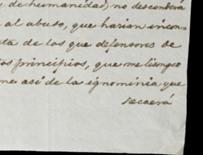 de humanidad) no desconocerá
al abuso, que harian incon-
ta de los que defensores de
tos principios, que me liempo
me asi de la ignominia, que
recaerá